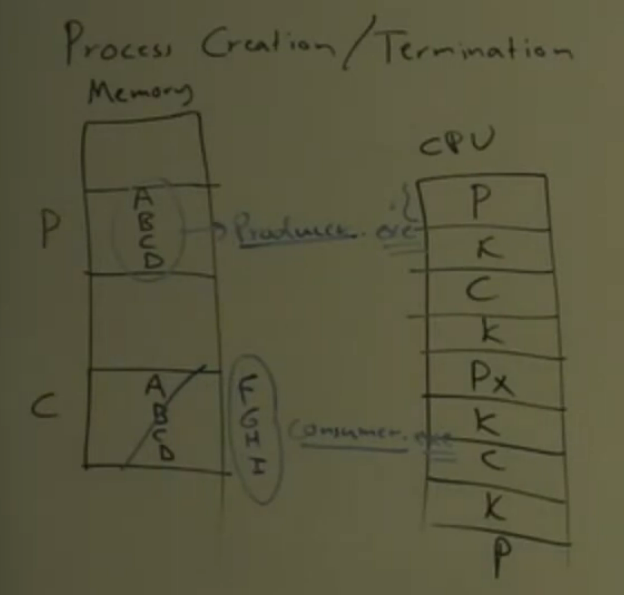 Process Creation/Termination
Memory
CPU
P
A
B
C
D
Producer.exe
C
A
B
C
D
F
G
H
I
Consumer.exe
P
K
C
K
Px
K
C
K
P